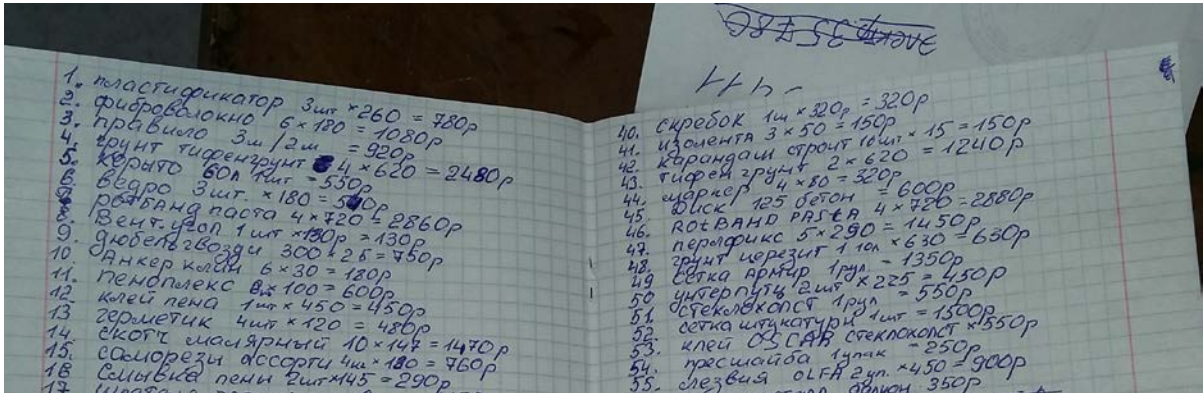 1. пластификатор 3шт × 260 = 780р
2. фиброволокно 6 × 180 = 1080р
3. правило 3м/2м = 920р
4. грунт тифенгрунт 4 × 620 = 2480р
5. корыто 60л 1шт = 550р
6. ведро 3шт. × 180 = 540р
ротбанд паста 4 × 720 = 2860р
8. Вент. угол 1шт × 130р = 130р
9. дюбель гвозди 300 × 25 = 750р
10. Анкер клин 6 × 30 = 180р
11. пеноплекс × 100 = 600р
12. клей пена 1шт × 450 = 450р
13 герметик 4шт × 120 = 480р
14. скотч малярный 10 × 147 = 1470р
15. саморезы ассорти 4шт × 190 = 760р
16 Смывка пены 2шт × 145 = 290р
17.
электр. 35 786
40. скребок 1шт × 320р = 320р
41. изолента 3 × 50 = 150р
42. карандаш строит 10шт × 15 = 150р
43. тифен грунт 2 × 620 = 1240р
44. маркер 4 × 80 = 320р
45. Диск 125 бетон = 600р
46. ROtBAND PAStA 4 × 720 = 2880р
47. перлфикс 5 × 290 = 1450р
48. грунт церезит 1 10л × 630 = 630р
49 сетка армир 1рул. = 1350р
50 унтерпутц 2шт × 225 = 450р
51. стеклохолст 1рул = 550р
52. сетка штукатурн 1шт = 1500р
53. клей OSCAR стеклохолст × 550р
54. пресшайба 1упак = 250р
55. лезвия OLFA 2уп. × 450 = 900р
350р